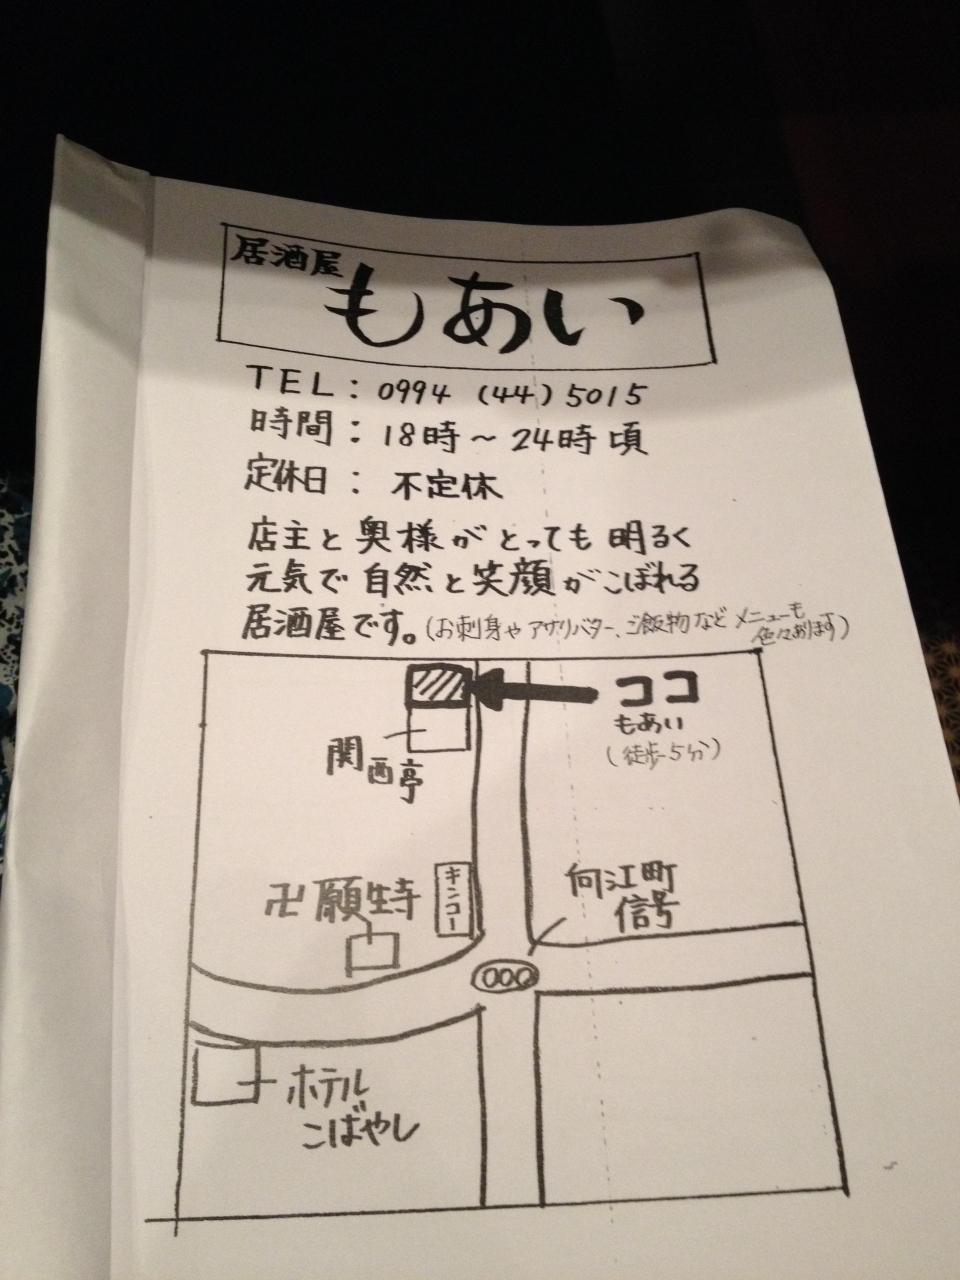 居酒屋
もあい
TEL: 0994 (44) 5015
時間: 18時～24時頃
定休日: 不定休
店主と奥様がとっても明るく
元気で自然と笑顔がこぼれる
居酒屋です。(お刺身やアサリバター、ご飯物などメニューも
色々あります)
ココ
もあい
(徒歩5分)
関西亭
卍願生寺
キンコー
向江町
信号
ホテル
こばやし